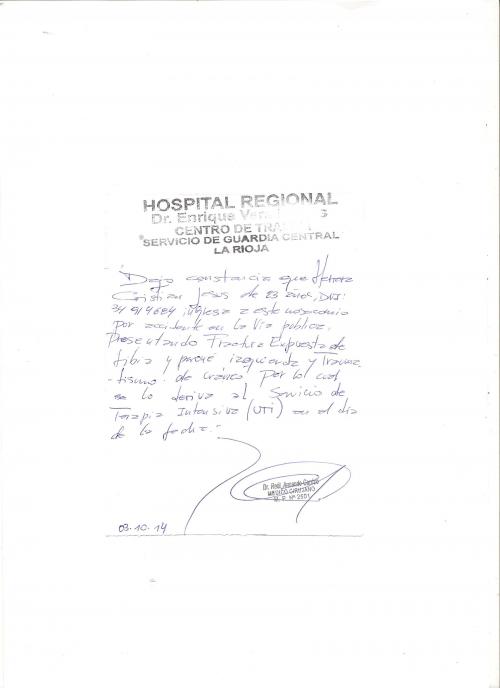 HOSPITAL REGIONAL
Dr. Enrique
CENTRO DE
SERVICIO DE GUARDIA CENTRAL
LA RIOJA
Dejo constancia que Herrera
Cristian Jesus de 23 años, DNI:
34914684 ingresa a este nosocomio
por accidente en la Via publica.
Presentando Fractura Expuesta de
tibia y peroné izquierda y Trauma
-tismo de cráneo. Por lo cual
se lo deriva al Servicio de
Terapia Intensiva (UTI) en el día
de la fecha.-
Dr. Raúl Armando
MEDICO CIRUJANO
M. P. Nº 2501
03.10.14